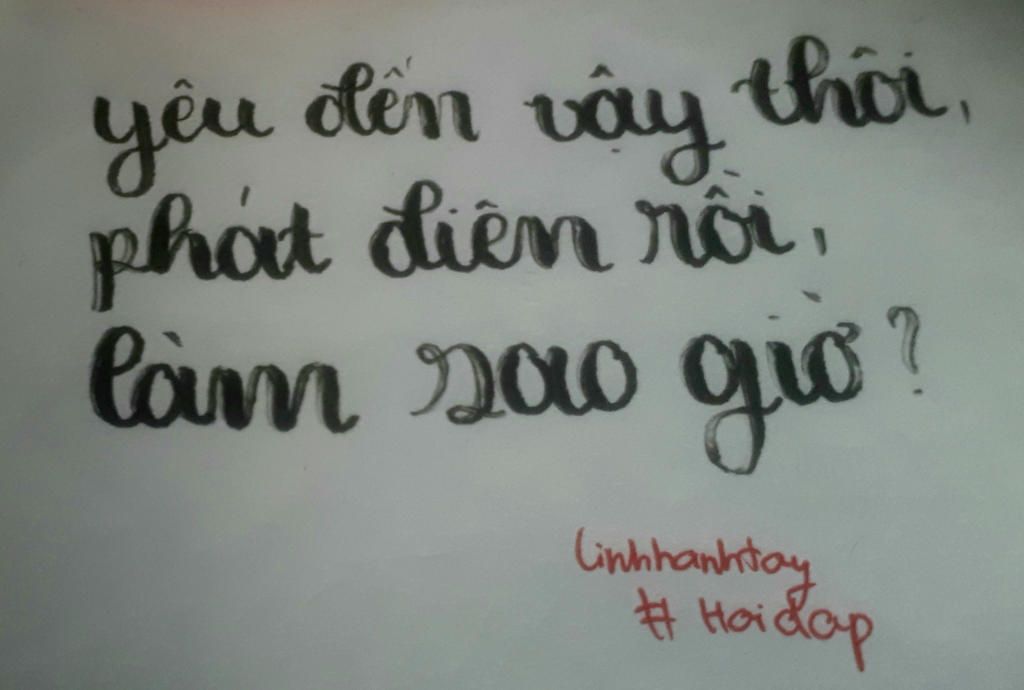 yêu đến vậy thôi,
phát điên rồi,
làm sao giờ?
Linhhanhtay
# Hoidap